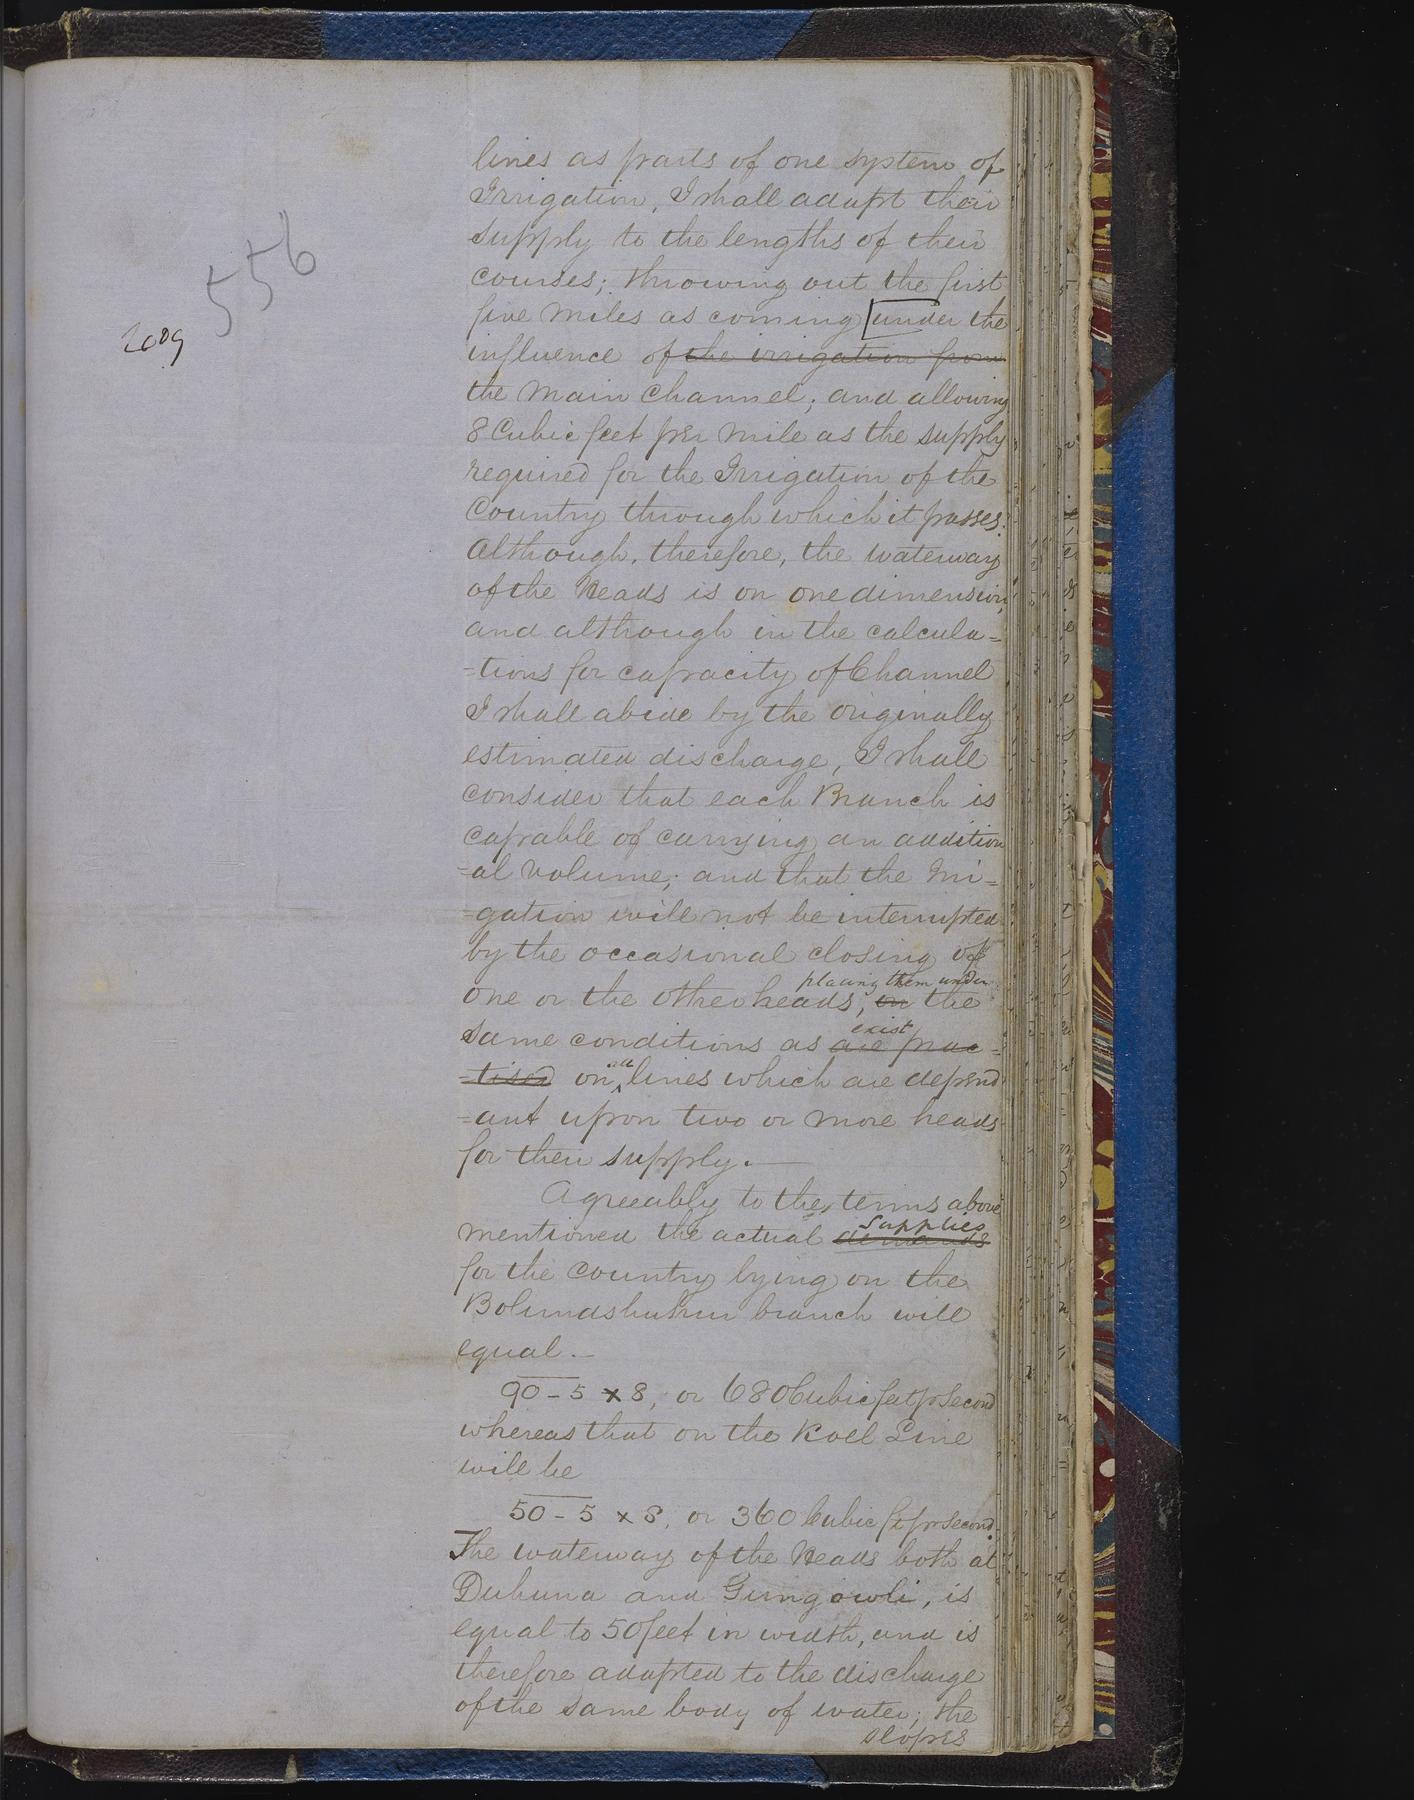 556
2009
lines as parts of one system of
Irrigation, I shall adapt their
supply to the lengths of their
courses; throwing out the first
five miles as coming [under the
influence of the irrigation from
the Main Channel; and allowing
8 Cubic feet per mile as the supply
required for the Irrigation of the
Country through which it passes.
Although, therefore, the waterway
of the Heads is on one dimension,
and although in the calcula=
=tions for capacity of Channel
I shall abide by the originally
estimated discharge, I shall
consider that each Branch is
capable of carrying an addition
=al Volume; and that the Irri=
=gation will not be interrupted
by the occasional closing of
placing them under
one or the other heads, on the
exist
same conditions as are prac=
=tised on all lines which are depend
=ant upon two or more heads
for their supply.—
Agreeably to the terms above
supplies
mentioned the actual demands
for the country lying on the
Bolundshuhur branch will
equal.—
90 - 5 x 8, or 680 Cubic feet pr second
whereas that on the Koel Line
will be
50 - 5 x 8, or 360 Cubic ft pr second.
The waterway of the Heads both at
Duhuna and Gungowli, is
equal to 50 feet in width, and is
therefore adapted to the discharge
of the same body of water; the
slopes